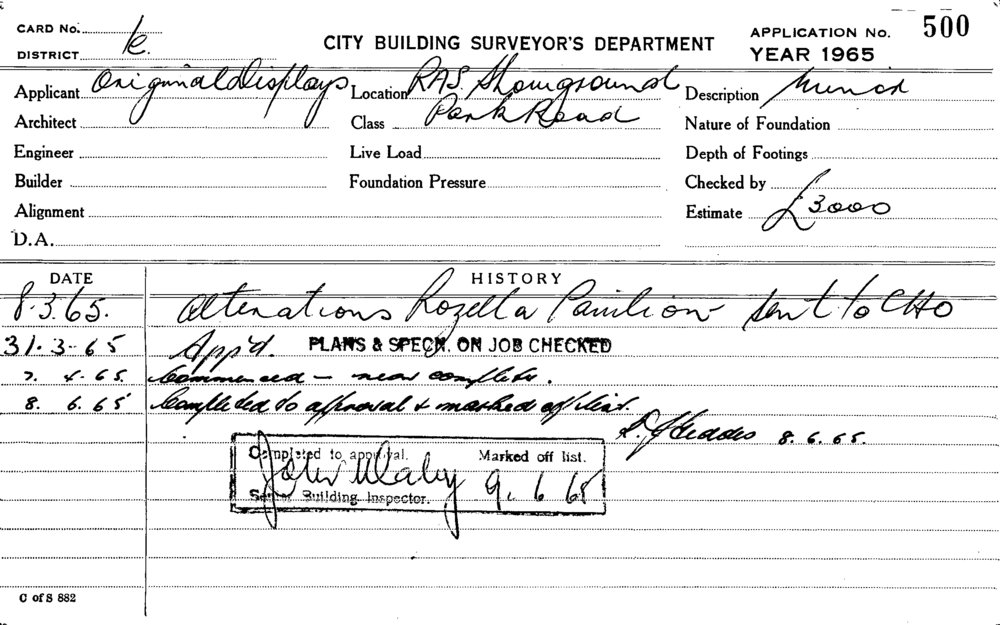 CARD No.
DISTRICT
CITY BUILDING SURVEYOR'S DEPARTMENT
APPLICATION No. 500
YEAR 1965
Applicant Original Displays Location RAS. Showground Description Minor
Architect Class Park Road Nature of Foundation
Engineer Live Load Depth of Footings
Builder Foundation Pressure Checked by
Alignment Estimate £3000
D.A.
DATE HISTORY
8.3.65. Alterations Rozella Pavilion sent to CHO
31-3-65 App'd. PLANS & SPECN. ON JOB CHECKED
7. 4.65. Commenced – near complete.
8. 6.65 Completed to approval & marked off list.
Geddes 8.6.65.
Completed to approval. Marked off list.
John 9.6.65
Senior Building Inspector.
C of S 882